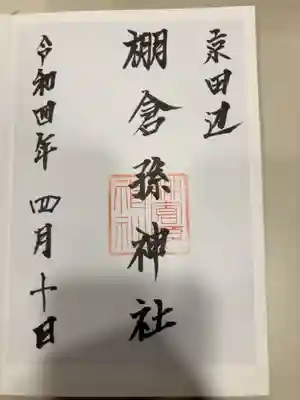 京田辺
棚倉孫神社
令和四年 四月十日